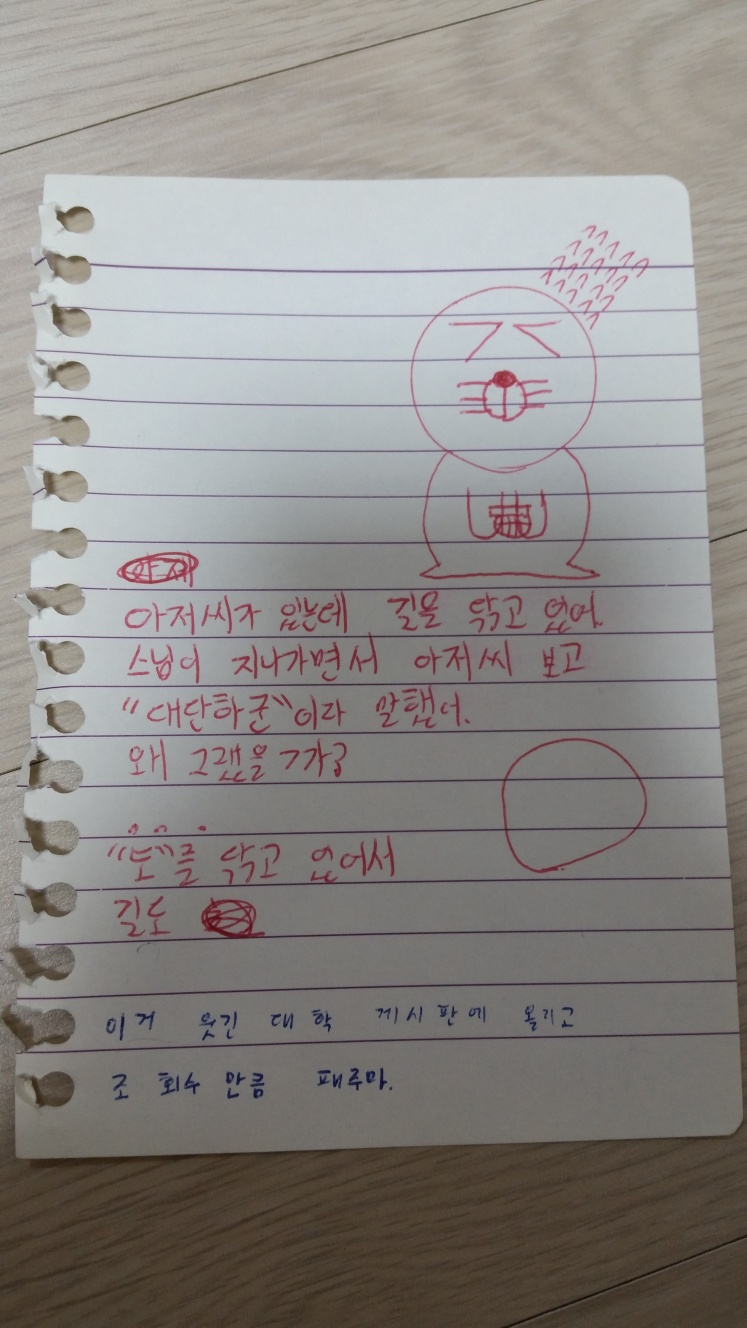 아저씨가 있는데 길을 닦고 있어.
스님이 지나가면서 아저씨 보고
"대단하군"이라 말했어.
왜 그랬을까?
"도"를 닦고 있어서
길도
이거 웃긴 대학 게시판에 올리고
조회수 만큼 패주마.